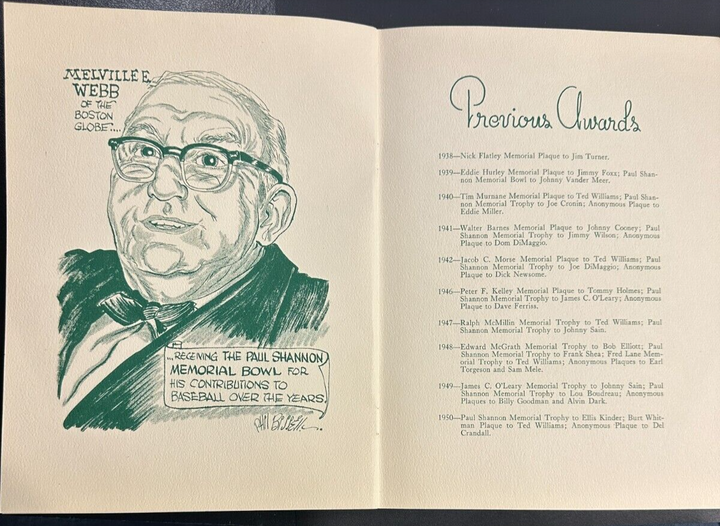 MELVILLE E.
WEBB
OF THE
BOSTON
GLOBE....
...RECEIVING THE PAUL SHANNON
MEMORIAL BOWL FOR
HIS CONTRIBUTIONS TO
BASEBALL OVER THE YEARS.
Previous Awards
1938—Nick Flatley Memorial Plaque to Jim Turner.
1939—Eddie Hurley Memorial Plaque to Jimmy Foxx; Paul Shan-
non Memorial Bowl to Johnny Vander Meer.
1940—Tim Murnane Memorial Plaque to Ted Williams; Paul Shan-
non Memorial Trophy to Joe Cronin; Anonymous Plaque to
Eddie Miller.
1941—Walter Barnes Memorial Plaque to Johnny Cooney; Paul
Shannon Memorial Trophy to Jimmy Wilson; Anonymous
Plaque to Dom DiMaggio.
1942—Jacob C. Morse Memorial Plaque to Ted Williams; Paul
Shannon Memorial Trophy to Joe DiMaggio; Anonymous
Plaque to Dick Newsome.
1946—Peter F. Kelley Memorial Plaque to Tommy Holmes; Paul
Shannon Memorial Trophy to James C. O'Leary; Anonymous
Plaque to Dave Ferriss.
1947—Ralph McMillin Memorial Trophy to Ted Williams; Paul
Shannon Memorial Trophy to Johnny Sain.
1948—Edward McGrath Memorial Trophy to Bob Elliott; Paul
Shannon Memorial Trophy to Frank Shea; Fred Lane Mem-
orial Trophy to Ted Williams; Anonymous Plaques to Earl
Torgeson and Sam Mele.
1949—James C. O'Leary Memorial Trophy to Johnny Sain; Paul
Shannon Memorial Trophy to Lou Boudreau; Anonymous
Plaques to Billy Goodman and Alvin Dark.
1950—Paul Shannon Memorial Trophy to Ellis Kinder; Burt Whit-
man Plaque to Ted Williams; Anonymous Plaque to Del
Crandall.